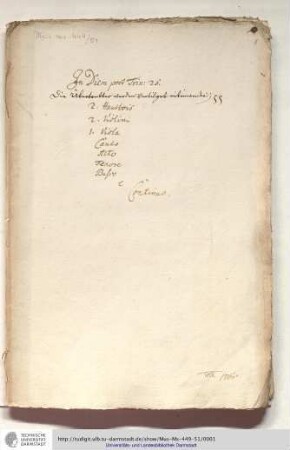 Mus. ms. 449/51
In Dom. post Trin: 25.
Die Übertretter werden vertilget miteinander
2. Hautbois
2. Violini
1. Viola
Canto
Alto
Tenore
Basso
e
Continuo.
TECHNISCHE
UNIVERSITÄT
DARMSTADT
http://tudigit.ulb.tu-darmstadt.de/show/Mus-Ms-449-51/0001
Universitäts- und Landesbibliothek Darmstadt